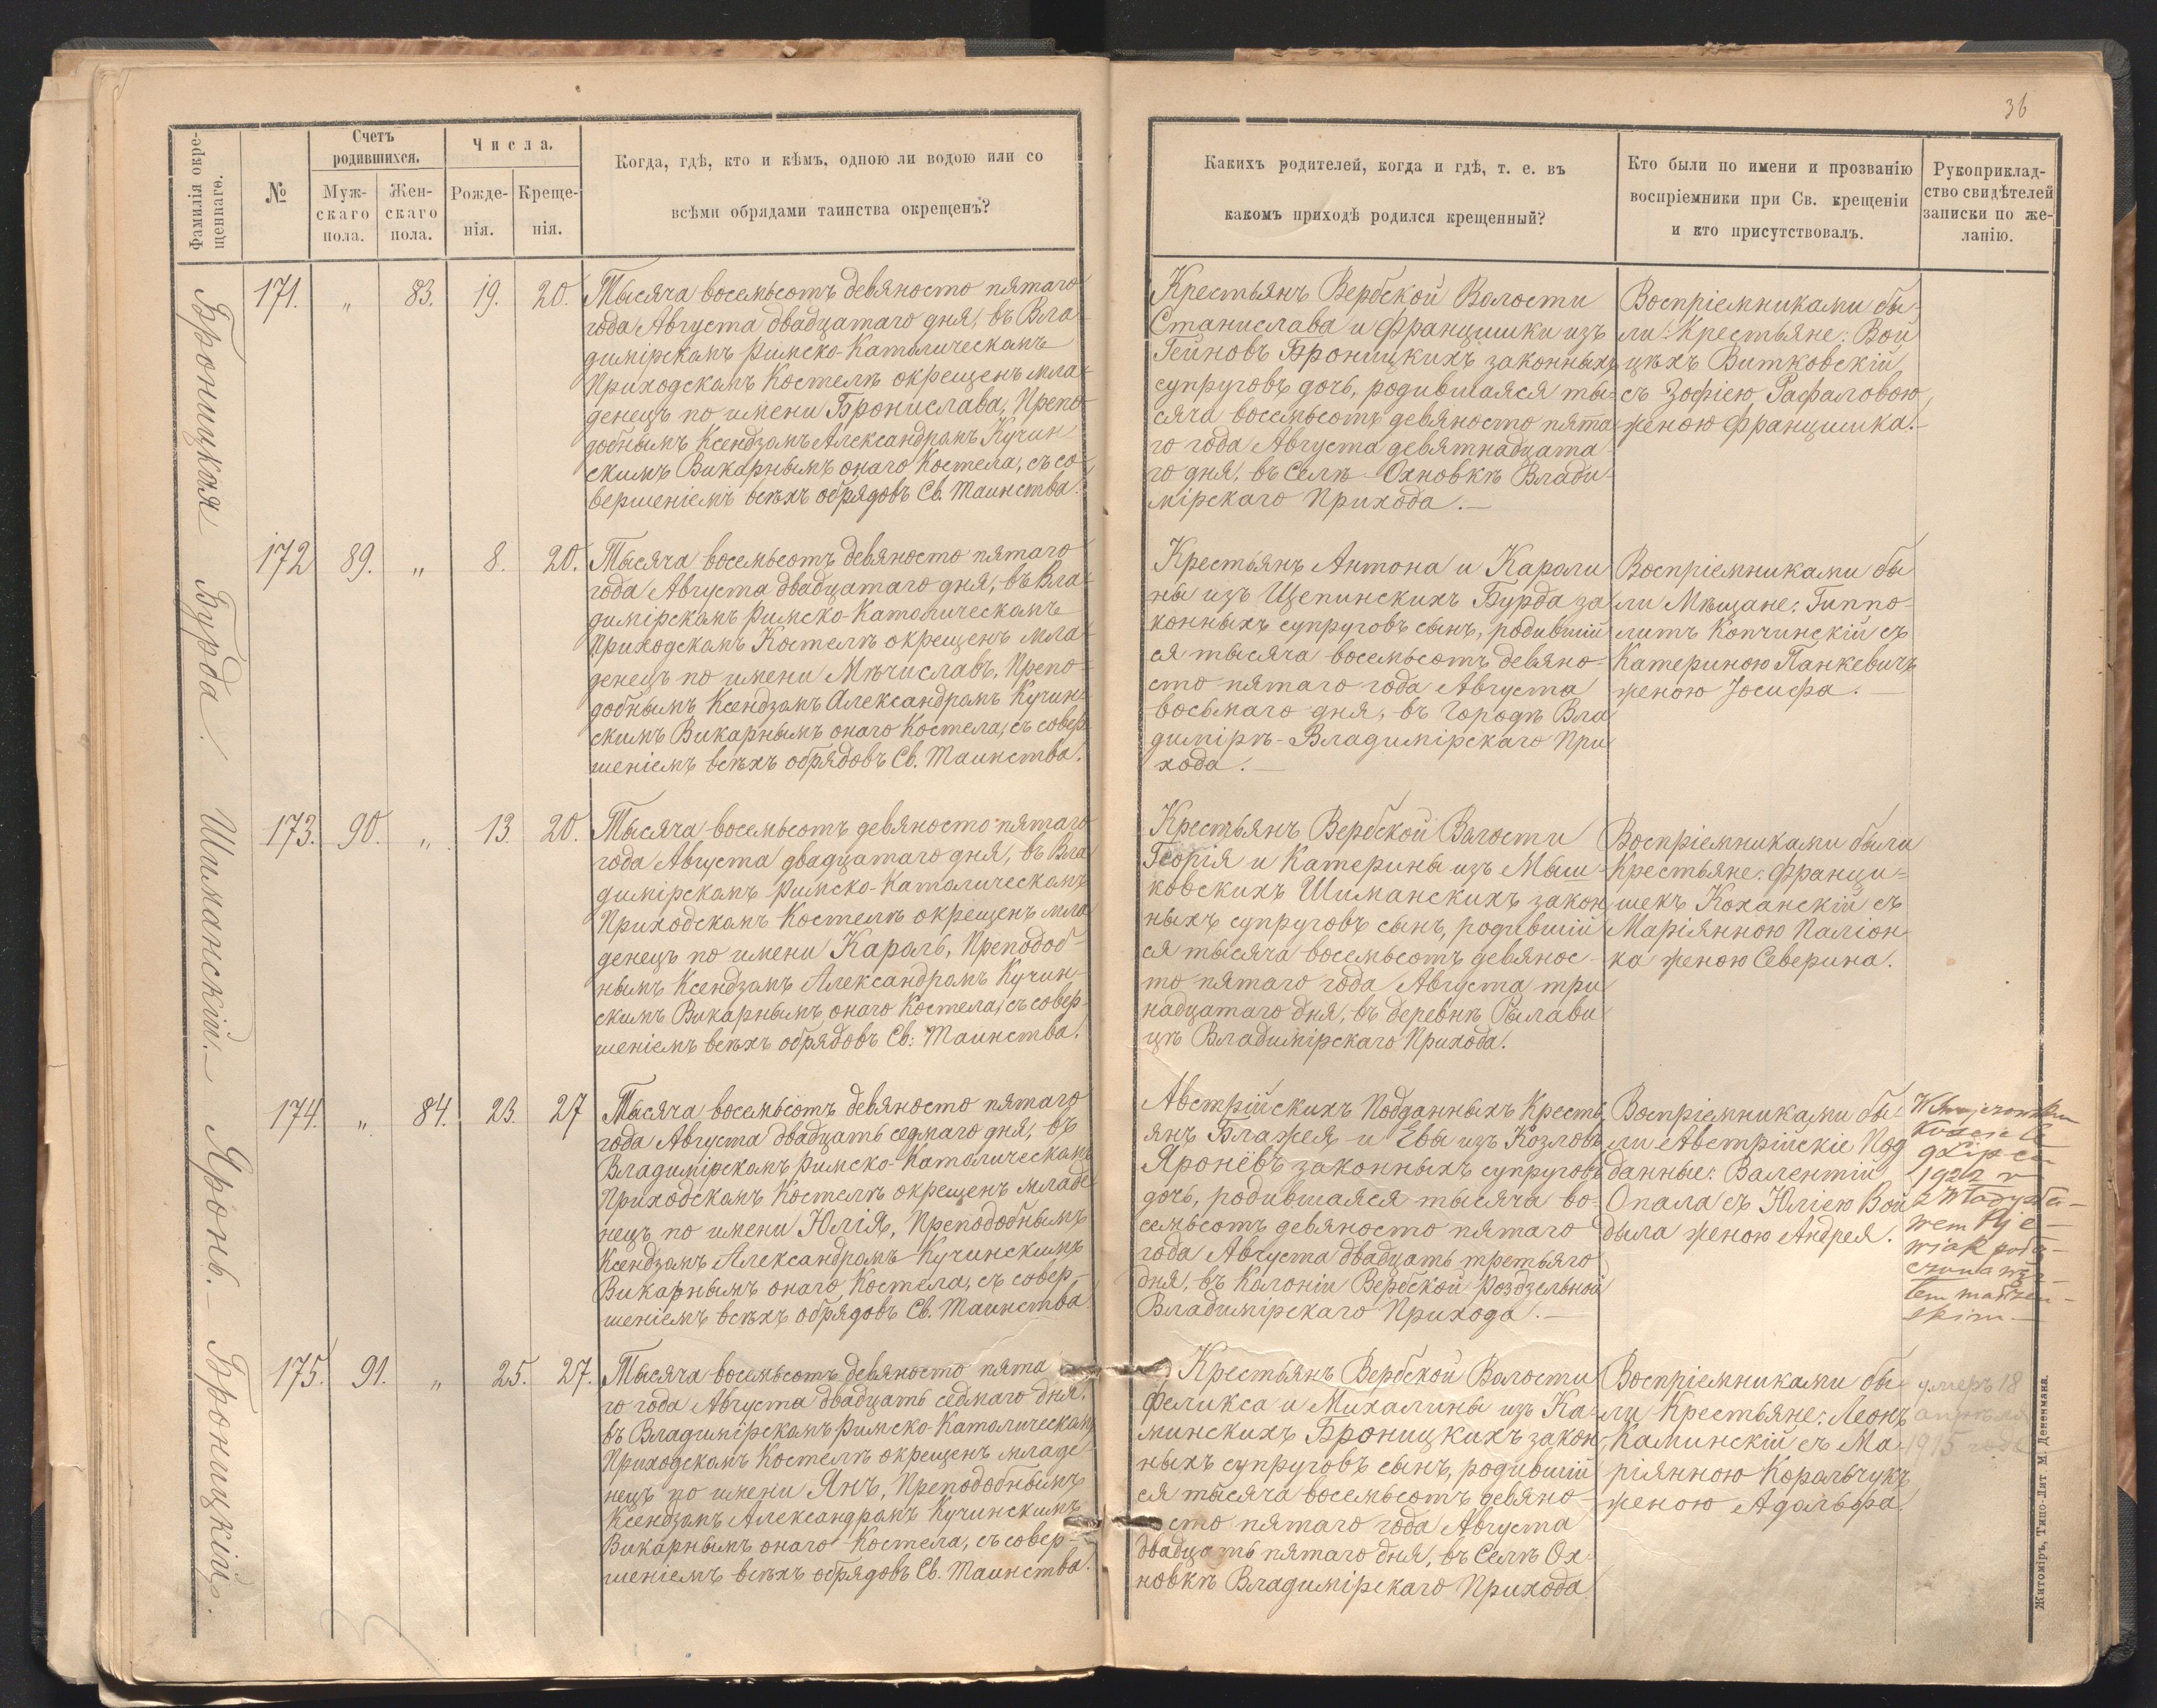 36
Фамилія окре-
щеннаго.
№
Счетъ
родившихся.
Муж-
скаго
пола.
Жен-
скаго
пола.
Числа.
Рожде-
нія.
Креще-
нія.
Когда, гдѣ, кто и кѣмъ, одною ли водою или со
всѣми обрядами таинства окрещенъ?
Какихъ родителей, когда и гдѣ, т. е. въ
какомъ приходѣ родился крещенный?
Кто были по имени и прозванію
воспріемники при Св. крещеніи
и кто присутствовалъ.
Рукоприклад-
ство свидѣтелей
записки по же-
ланію.
Броницкая
171. „ 83. 19. 20.
Тысяча восемьсотъ девяносто пятаго
года Августа двадцатаго дня, въ Вла-
димірскомъ Римско-Католическомъ
Приходскомъ Костелѣ окрещенъ мла-
денецъ по имени Бронислава, Препо-
добнымъ Ксендзомъ Александромъ Кучин-
скимъ Викарнымъ онаго Костела, съ со-
вершеніемъ всѣхъ обрядовъ Св. Таинства.
Крестьянъ Вербской Волости
Станислава и Францишки изъ
Гейновъ Броницкихъ законныхъ
супруговъ дочь, родившаяся ты-
сяча восемьсотъ девяносто пята-
го года Августа девятнадцата-
го дня, въ Селѣ Охновкѣ Влади-
мірскаго Прихода.—
Воспріемниками бы-
ли: Крестьяне: Вой
цѣхъ Витковскій
съ Зофіею Рафаловою
женою Францишка.—
Бурда.
172 89. „ 8. 20.
Тысяча восемьсотъ девяносто пятаго
года Августа двадцатаго дня, въ Вла-
димірскомъ Римско-Католическомъ
Приходскомъ Костелѣ окрещенъ мла-
денецъ по имени Мѣчиславъ, Препо-
добнымъ Ксендзомъ Александромъ Кучин-
скимъ Викарнымъ онаго Костела, съ совер-
шеніемъ всѣхъ обрядовъ Св. Таинства.
Крестьянъ Антона и Кароли
ны изъ Щепинскихъ Бурда за
конныхъ супруговъ сынъ, родившій
ся тысяча восемьсотъ девяно-
сто пятаго года Августа
восьмаго дня, въ Городѣ Вла
димірѣ-Владимірскаго При
хода.—
Воспріемниками бы
ли Мѣщане: Гиппо-
литъ Копчинскій съ
Катериною Панкевичъ
женою Іосифа.—
Шиманскій.
173. 90. „ 13 20.
Тысяча восемьсотъ девяносто пятаго
года Августа двадцатаго дня, въ Вла
димірскомъ Римско-Католическомъ
Приходскомъ Костелѣ окрещенъ мла
денецъ по имени Кароль, Преподоб-
нымъ Ксендзомъ Александромъ Кучин-
скимъ Викарнымъ онаго Костела, съ совер-
шеніемъ всѣхъ обрядовъ Св: Таинства.
Крестьянъ Вербской Волости
Георія и Катерины изъ Мыш-
ковскихъ Шиманскихъ закон
ныхъ супруговъ сынъ, родившій
ся тысяча восемьсотъ девянос-
то пятаго года Августа три
надцатаго дня, въ деревнѣ Рылави
цѣ Владимірскаго Прихода.
Воспріемниками были
Крестьяне: Франци-
шекъ Коханскій съ
Маріянною Паліон-
ка женою Северина.
Яронь.
174. „ 84. 23. 27
Тысяча восемьсотъ девяносто пятаго
года Августа двадцать седмаго дня, въ
Владимірскомъ Римско-Католическомъ
Приходскомъ Костелѣ окрещенъ младе
нецъ по имени Юлія, Преподобнымъ
Ксендзомъ Александромъ Кучинскимъ
Викарнымъ онаго Костела, съ совер-
шеніемъ всѣхъ обрядовъ Св. Таинства.
Австрійскихъ Подданныхъ Кресть
янъ Блажея и Евы изъ Козловъ
Яронёвъ законныхъ супруговъ
дочь, родившаяся тысяча во-
семьсотъ девяносто пятаго
года Августа двадцать третьяго
дня, въ Колоніи Вербской Роздзельной
Владимірскаго Прихода.—
Воспріемниками бы-
ли Австрійскіе Под
данные: Валентій
Опала съ Юліею Вой
дыла женою Андрея.
1922 r
z Władysła-
wem
węz-
łem małżeń-
skim—
Броницкій.
175. 91. „ 25. 27.
Тысяча восемьсотъ девяносто пята
го года Августа двадцать седмаго дня,
въ Владимірскомъ Римско-Католическомъ
Приходскомъ Костелѣ окрещенъ младе-
нецъ по имени Янъ, Преподобнымъ
Ксендзомъ Александромъ Кучинскимъ
Викарнымъ онаго Костела, съ совер-
шеніемъ всѣхъ обрядовъ Св. Таинства.
Крестьянъ Вербской Волости
Феликса и Михалины изъ Ка-
минскихъ Броницкихъ закон-
ныхъ супруговъ сынъ, родившій
ся тысяча восемьсотъ девяно-
сто пятаго года Августа
двадцать пятаго дня, въ Селѣ Ох-
новкѣ Владимірскаго Прихода
Воспріемниками бы-
ли Крестьяне: Леонъ
Каминскій съ Ма-
ріянною Коральчукъ
женою Адольфа.
умеръ 18
апрѣля
1915 года
Житоміръ, Типо-Лит М. Дененмана.